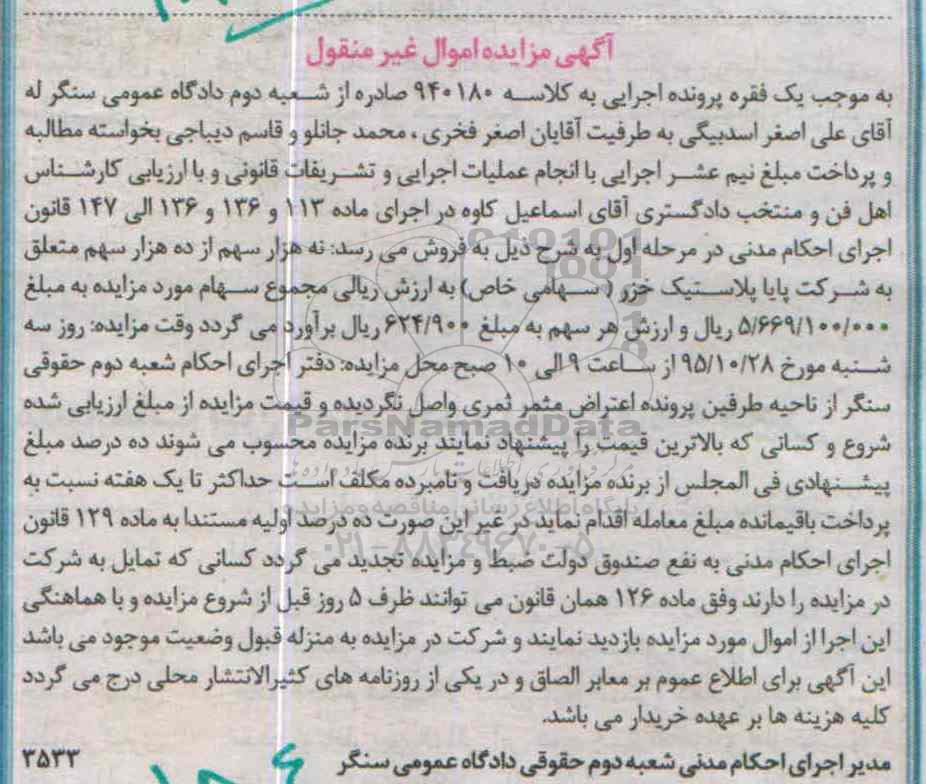 آگهی مزایده اموال غیر منقول
به موجب یک فقره پرونده اجرایی به کلاسه ۹۴۰۱۸۰ صادره از شعبه دوم دادگاه عمومی سنگر له
آقای علی اصغر اسدبیگی به طرفیت آقایان اصغر فخری ، محمد جانلو و قاسم دیباجی بخواسته مطالبه
و پرداخت مبلغ نیم عشر اجرایی با انجام عملیات اجرایی و تشریفات قانونی و با ارزیابی کارشناس
اهل فن و منتخب دادگستری آقای اسماعیل کاوه در اجرای ماده ۱۱۳ و ۱۳۶ و ۱۳۶ الی ۱۴۷ قانون
اجرای احکام مدنی در مرحله اول به شرح ذیل به فروش می رسد: نه هزار سهم از ده هزار سهم متعلق
به شرکت پایا پلاستیک خزر ( سهامی خاص) به ارزش ریالی مجموع سهام مورد مزایده به مبلغ
۵/۶۶۹/۱۰۰/۰۰۰ ریال و ارزش هر سهم به مبلغ ۶۲۴/۹۰۰ ریال برآورد می گردد وقت مزایده: روز سه
شنبه مورخ ۹۵/۱۰/۲۸ از ساعت ۹ الی ۱۰ صبح محل مزایده: دفتر اجرای احکام شعبه دوم حقوقی
سنگر از ناحیه طرفین پرونده اعتراض مثمر ثمری واصل نگردیده و قیمت مزایده از مبلغ ارزیابی شده
شروع و کسانی که بالاترین قیمت را پیشنهاد نمایند برنده مزایده محسوب می شوند ده درصد مبلغ
پیشنهادی فی المجلس از برنده مزایده دریافت و نامبرده مکلف است حداکثر تا یک هفته نسبت به
پرداخت باقیمانده مبلغ معامله اقدام نماید در غیر این صورت ده درصد اولیه مستندا به ماده ۱۲۹ قانون
اجرای احکام مدنی به نفع صندوق دولت ضبط و مزایده تجدید می گردد کسانی که تمایل به شرکت
در مزایده را دارند وفق ماده ۱۲۶ همان قانون می توانند ظرف ۵ روز قبل از شروع مزایده و با هماهنگی
این اجرا از اموال مورد مزایده بازدید نمایند و شرکت در مزایده به منزله قبول وضعیت موجود می باشد
این آگهی برای اطلاع عموم بر معابر الصاق و در یکی از روزنامه های کثیرالانتشار محلی درج می گردد
کلیه هزینه ها بر عهده خریدار می باشد.
مدیر اجرای احکام مدنی شعبه دوم حقوقی دادگاه عمومی سنگر ۳۵۳۳
ParsNamadData
پایگاه اطلاع رسانی مناقصه و مزایده
۰۲۱-۸۸۳۴۹۶۷۰-۵